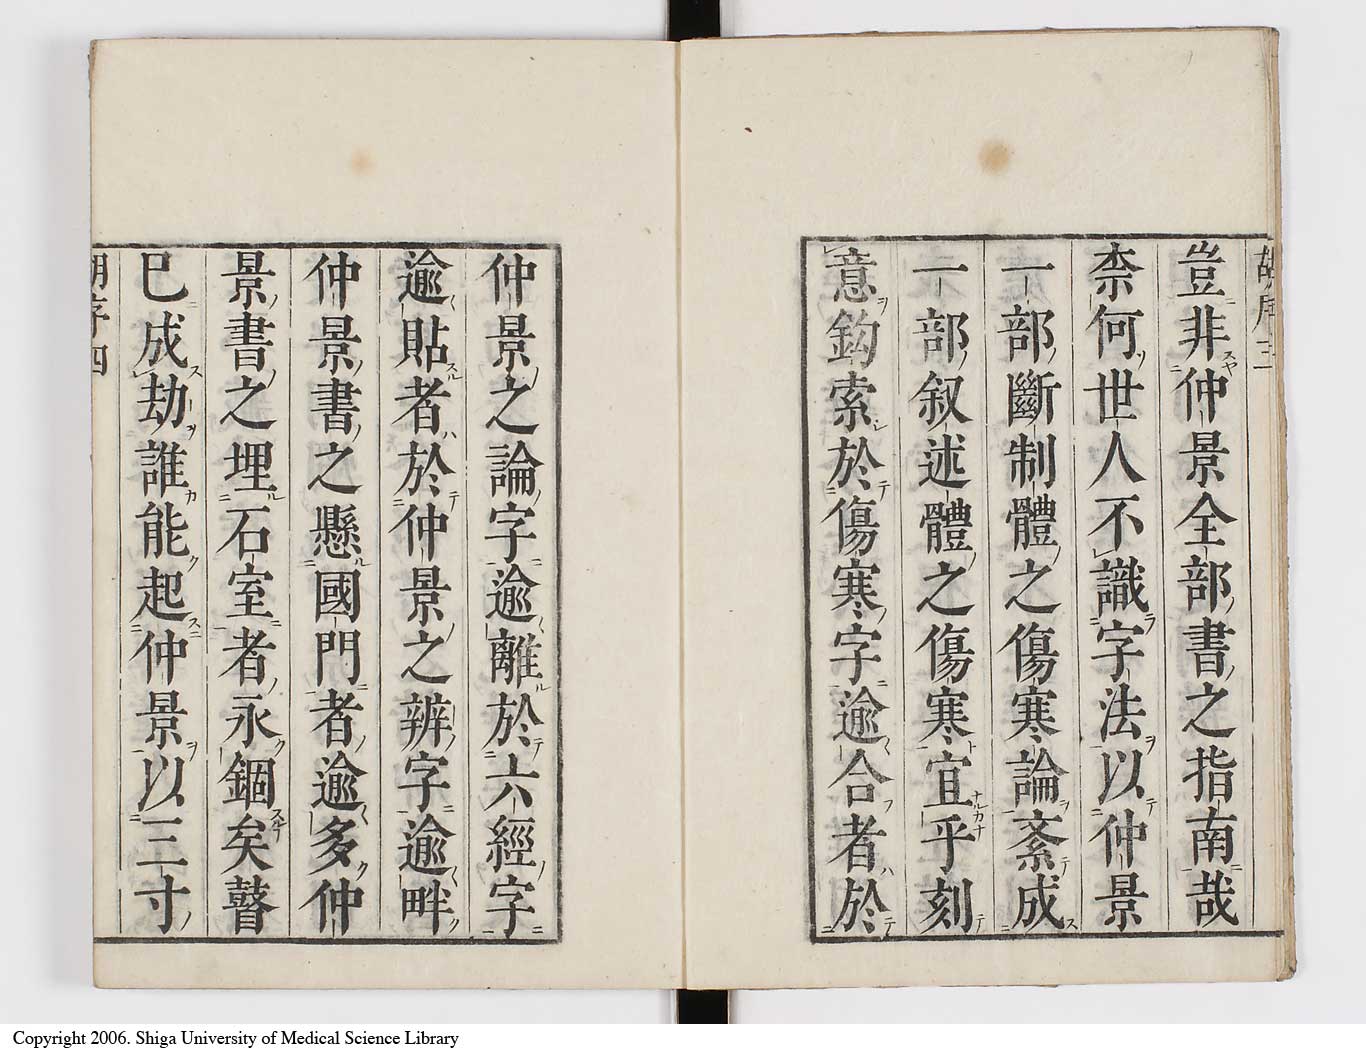 胡序三
豈非仲景全部書之指南哉
柰何世人不識字法以仲景
一部斷制體之傷寒論紊成
一部叙述體之傷寒宜乎刻
意鈎索於傷寒字逾合者於
仲景之論字逾離於六經字
逾貼者於仲景之辨字逾畔
仲景書之懸國門者逾多仲
景書之埋石室者永錮矣瞽
已成劫誰能起仲景以三寸
胡序四
Copyright 2006. Shiga University of Medical Science Library